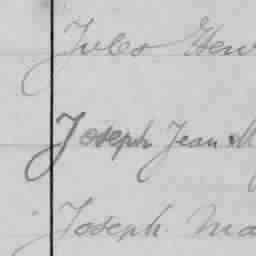 Jules Hen
Joseph Jean M
Joseph Ma